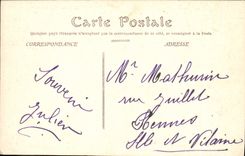 Carte Postale
CORRESPONDANCE
ADRESSE
Souvenir
Julien
Mr Mathurin
rue Juillet
Rennes
Ille et Vilaine